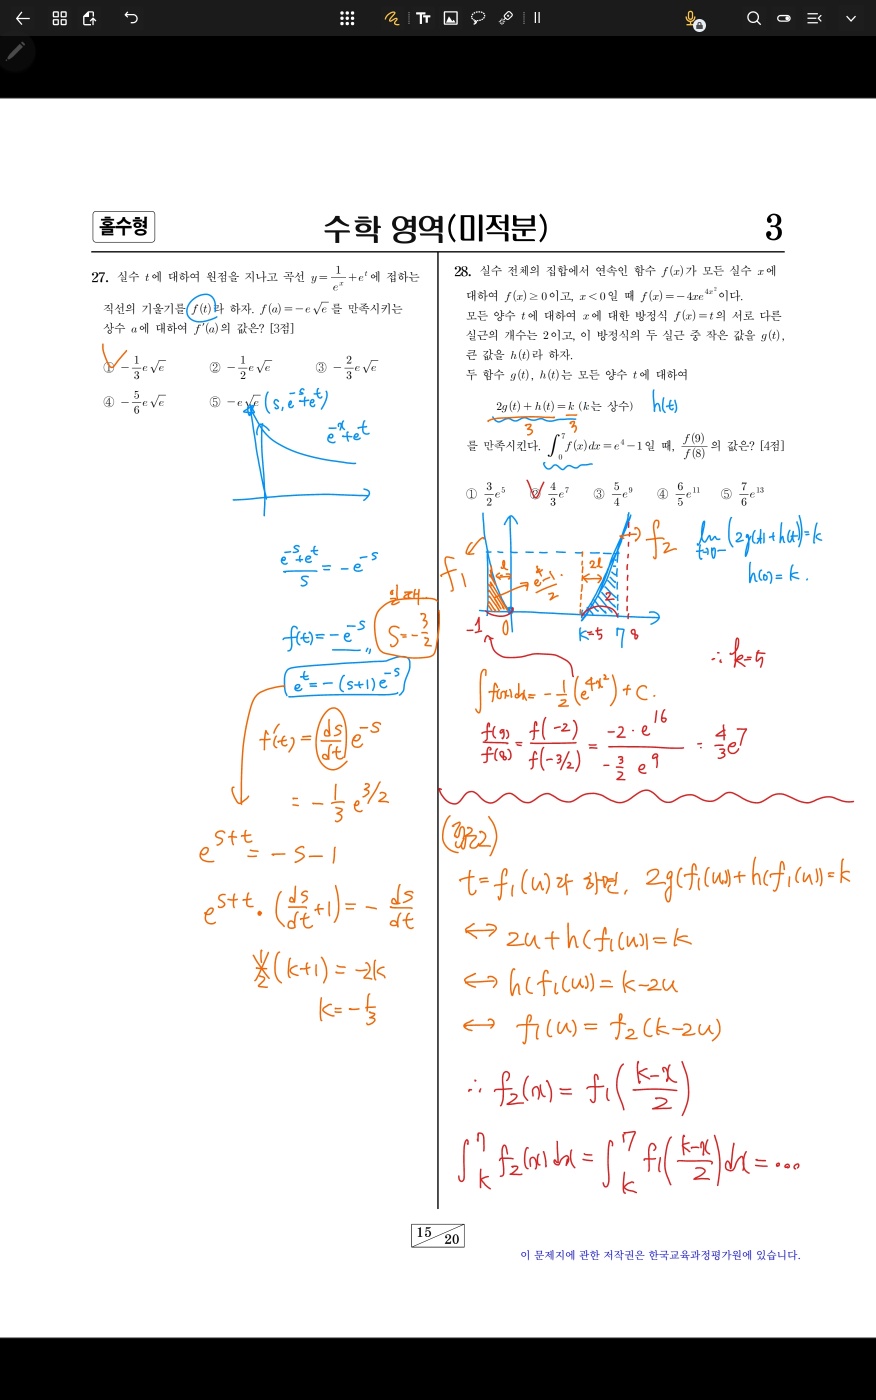 홀수형
수학 영역(미적분)
3
27. 실수 t에 대하여 원점을 지나고 곡선 y=1/e^x+e^t에 접하는
직선의 기울기를 f(t)라 하자. f(a)=-e√e를 만족시키는
상수 a에 대하여 f′(a)의 값은? [3점]
① -1/3 e√e ② -1/2 e√e ③ -2/3 e√e
④ -5/6 e√e ⑤ -e√e
(s, e^-s+e^t)
e^-x+e^t
(e^-s+e^t)/s = -e^-s
f(t) = -e^-s
s=-3/2
e^t = -(s+1)e^-s
f′(t) = (ds/dt) e^-s
= -1/3 e^3/2
e^s+t = -s-1
e^s+t · (ds/dt+1) = - ds/dt
1/2 (k+1) = -2k
k=-1/3
28. 실수 전체의 집합에서 연속인 함수 f(x)가 모든 실수 x에
대하여 f(x)≥0이고, x<0일 때 f(x)=-4xe^4x²이다.
모든 양수 t에 대하여 x에 대한 방정식 f(x)=t의 서로 다른
실근의 개수는 2이고, 이 방정식의 두 실근 중 작은 값을 g(t),
큰 값을 h(t)라 하자.
두 함수 g(t), h(t)는 모든 양수 t에 대하여
2g(t)+h(t)=k (k는 상수)
h(t)
3 3
를 만족시킨다. ∫_0^7 f(x)dx=e^4-1일 때, f(9)/f(8)의 값은? [4점]
① 3/2 e^5 ② 4/3 e^7 ③ 5/4 e^9 ④ 6/5 e^11 ⑤ 7/6 e^13
f1
l
(e^4-1)/2
2l
2
f2
-1 0 k=5 7 8
lim t→0+ (2g(t)+h(t))=k
h(0)=k.
∴ k=5
∫f(x)dx = -1/2(e^4x²)+C.
f(9)/f(8) = f(-2)/f(-3/2) = (-2·e^16)/(-3/2 e^9) = 4/3 e^7
t=f1(u)라 하면, 2g(f1(u))+h(f1(u))=k
↔ 2u+h(f1(u))=k
↔ h(f1(u))=k-2u
↔ f1(u)=f2(k-2u)
∴ f2(x) = f1((k-x)/2)
∫_k^7 f2(x)dx = ∫_k^7 f1((k-x)/2)dx = ...
15 20
이 문제지에 관한 저작권은 한국교육과정평가원에 있습니다.